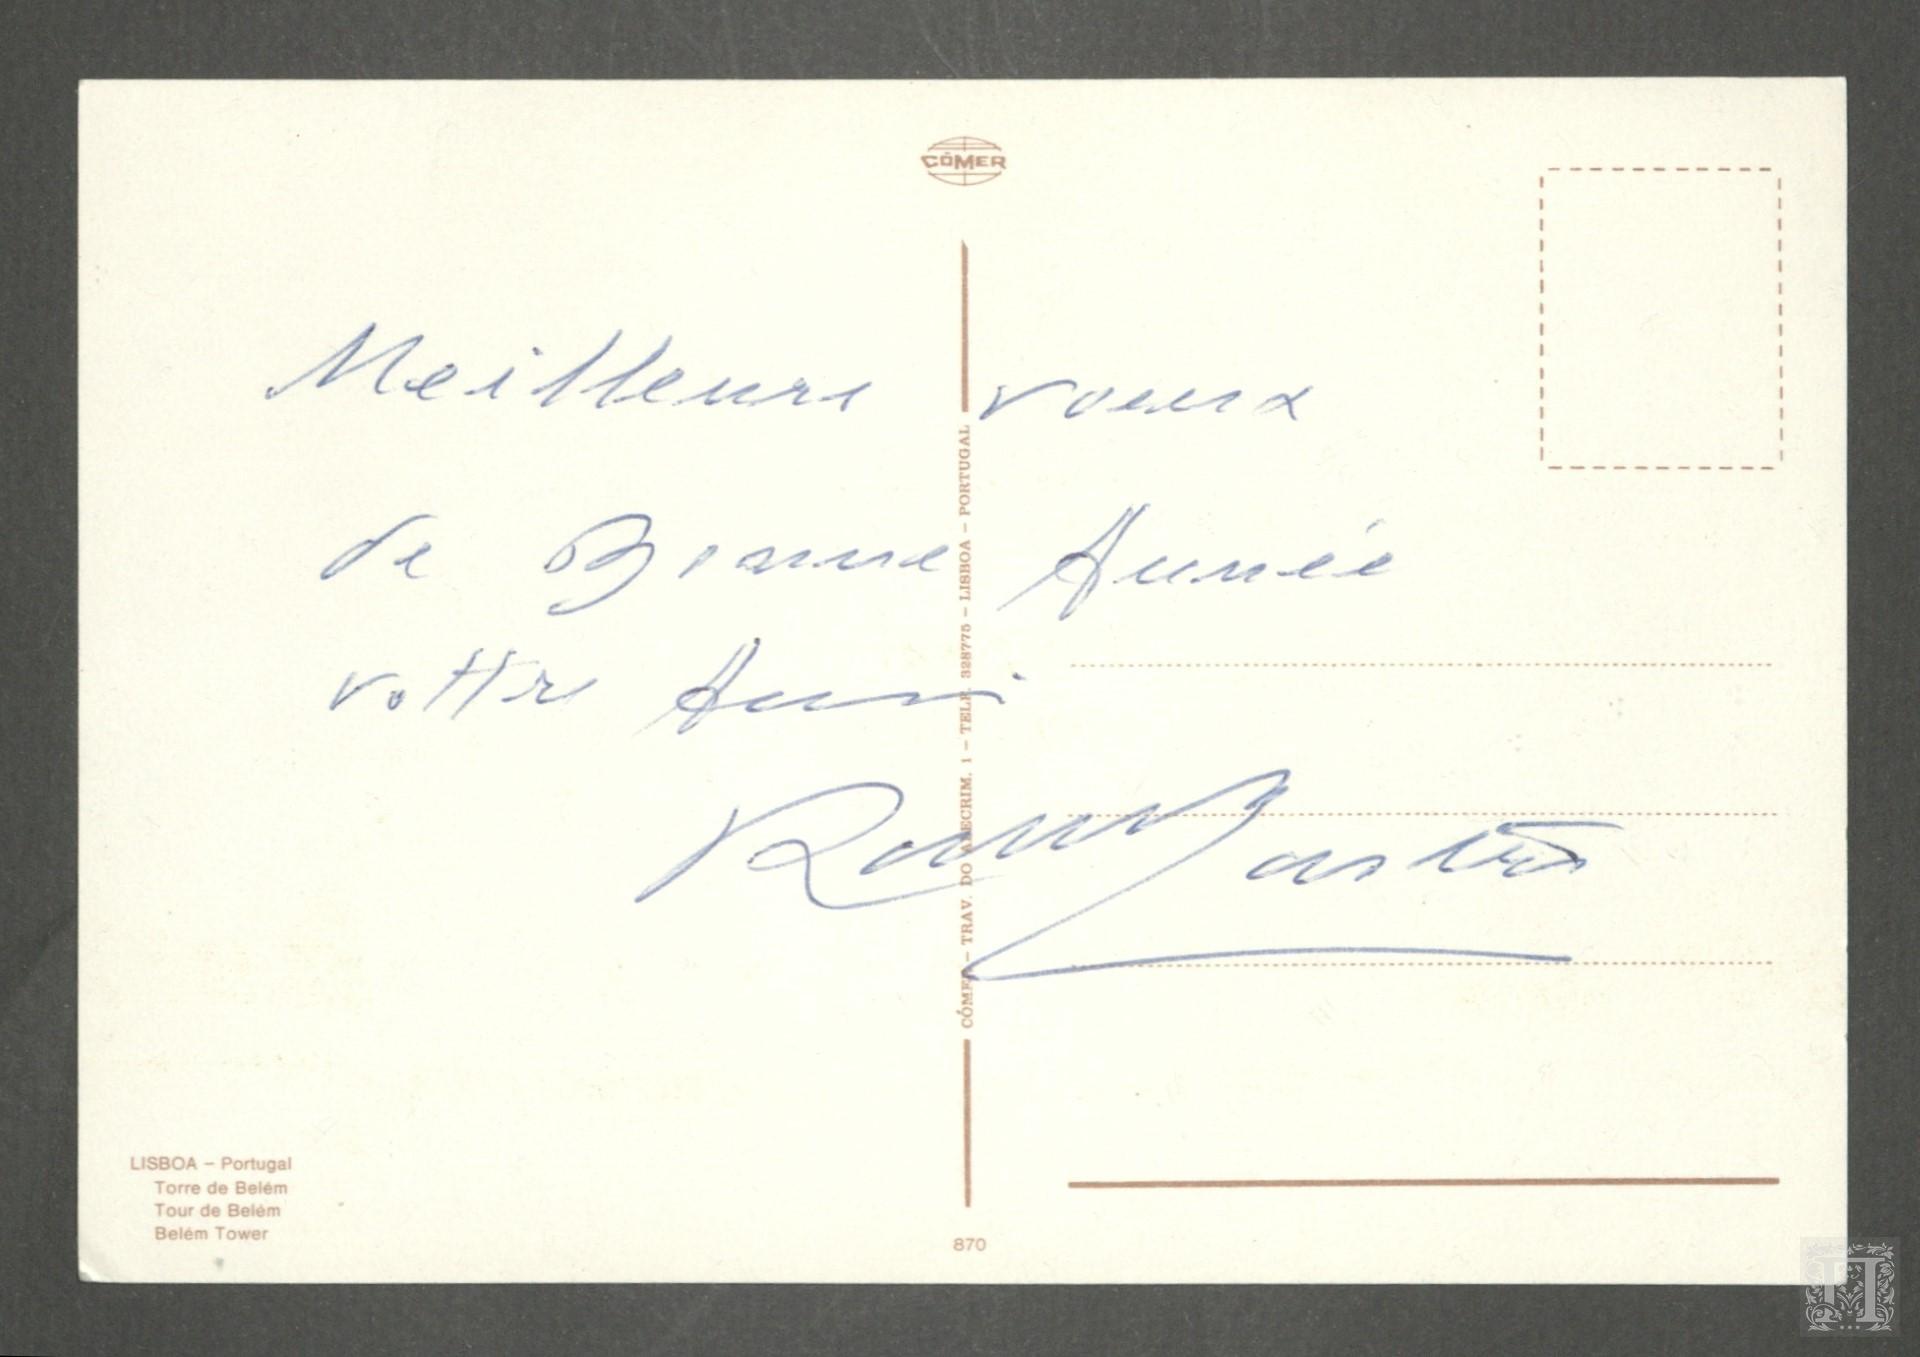 CÓMER
Meilleurs voeux
de Bonne Année
vottre Ami
CÓMER – TRAV. DO ALECRIM, 1 – TELF. 328775 – LISBOA – PORTUGAL
LISBOA – Portugal
Torre de Belém
Tour de Belém
Belém Tower
870